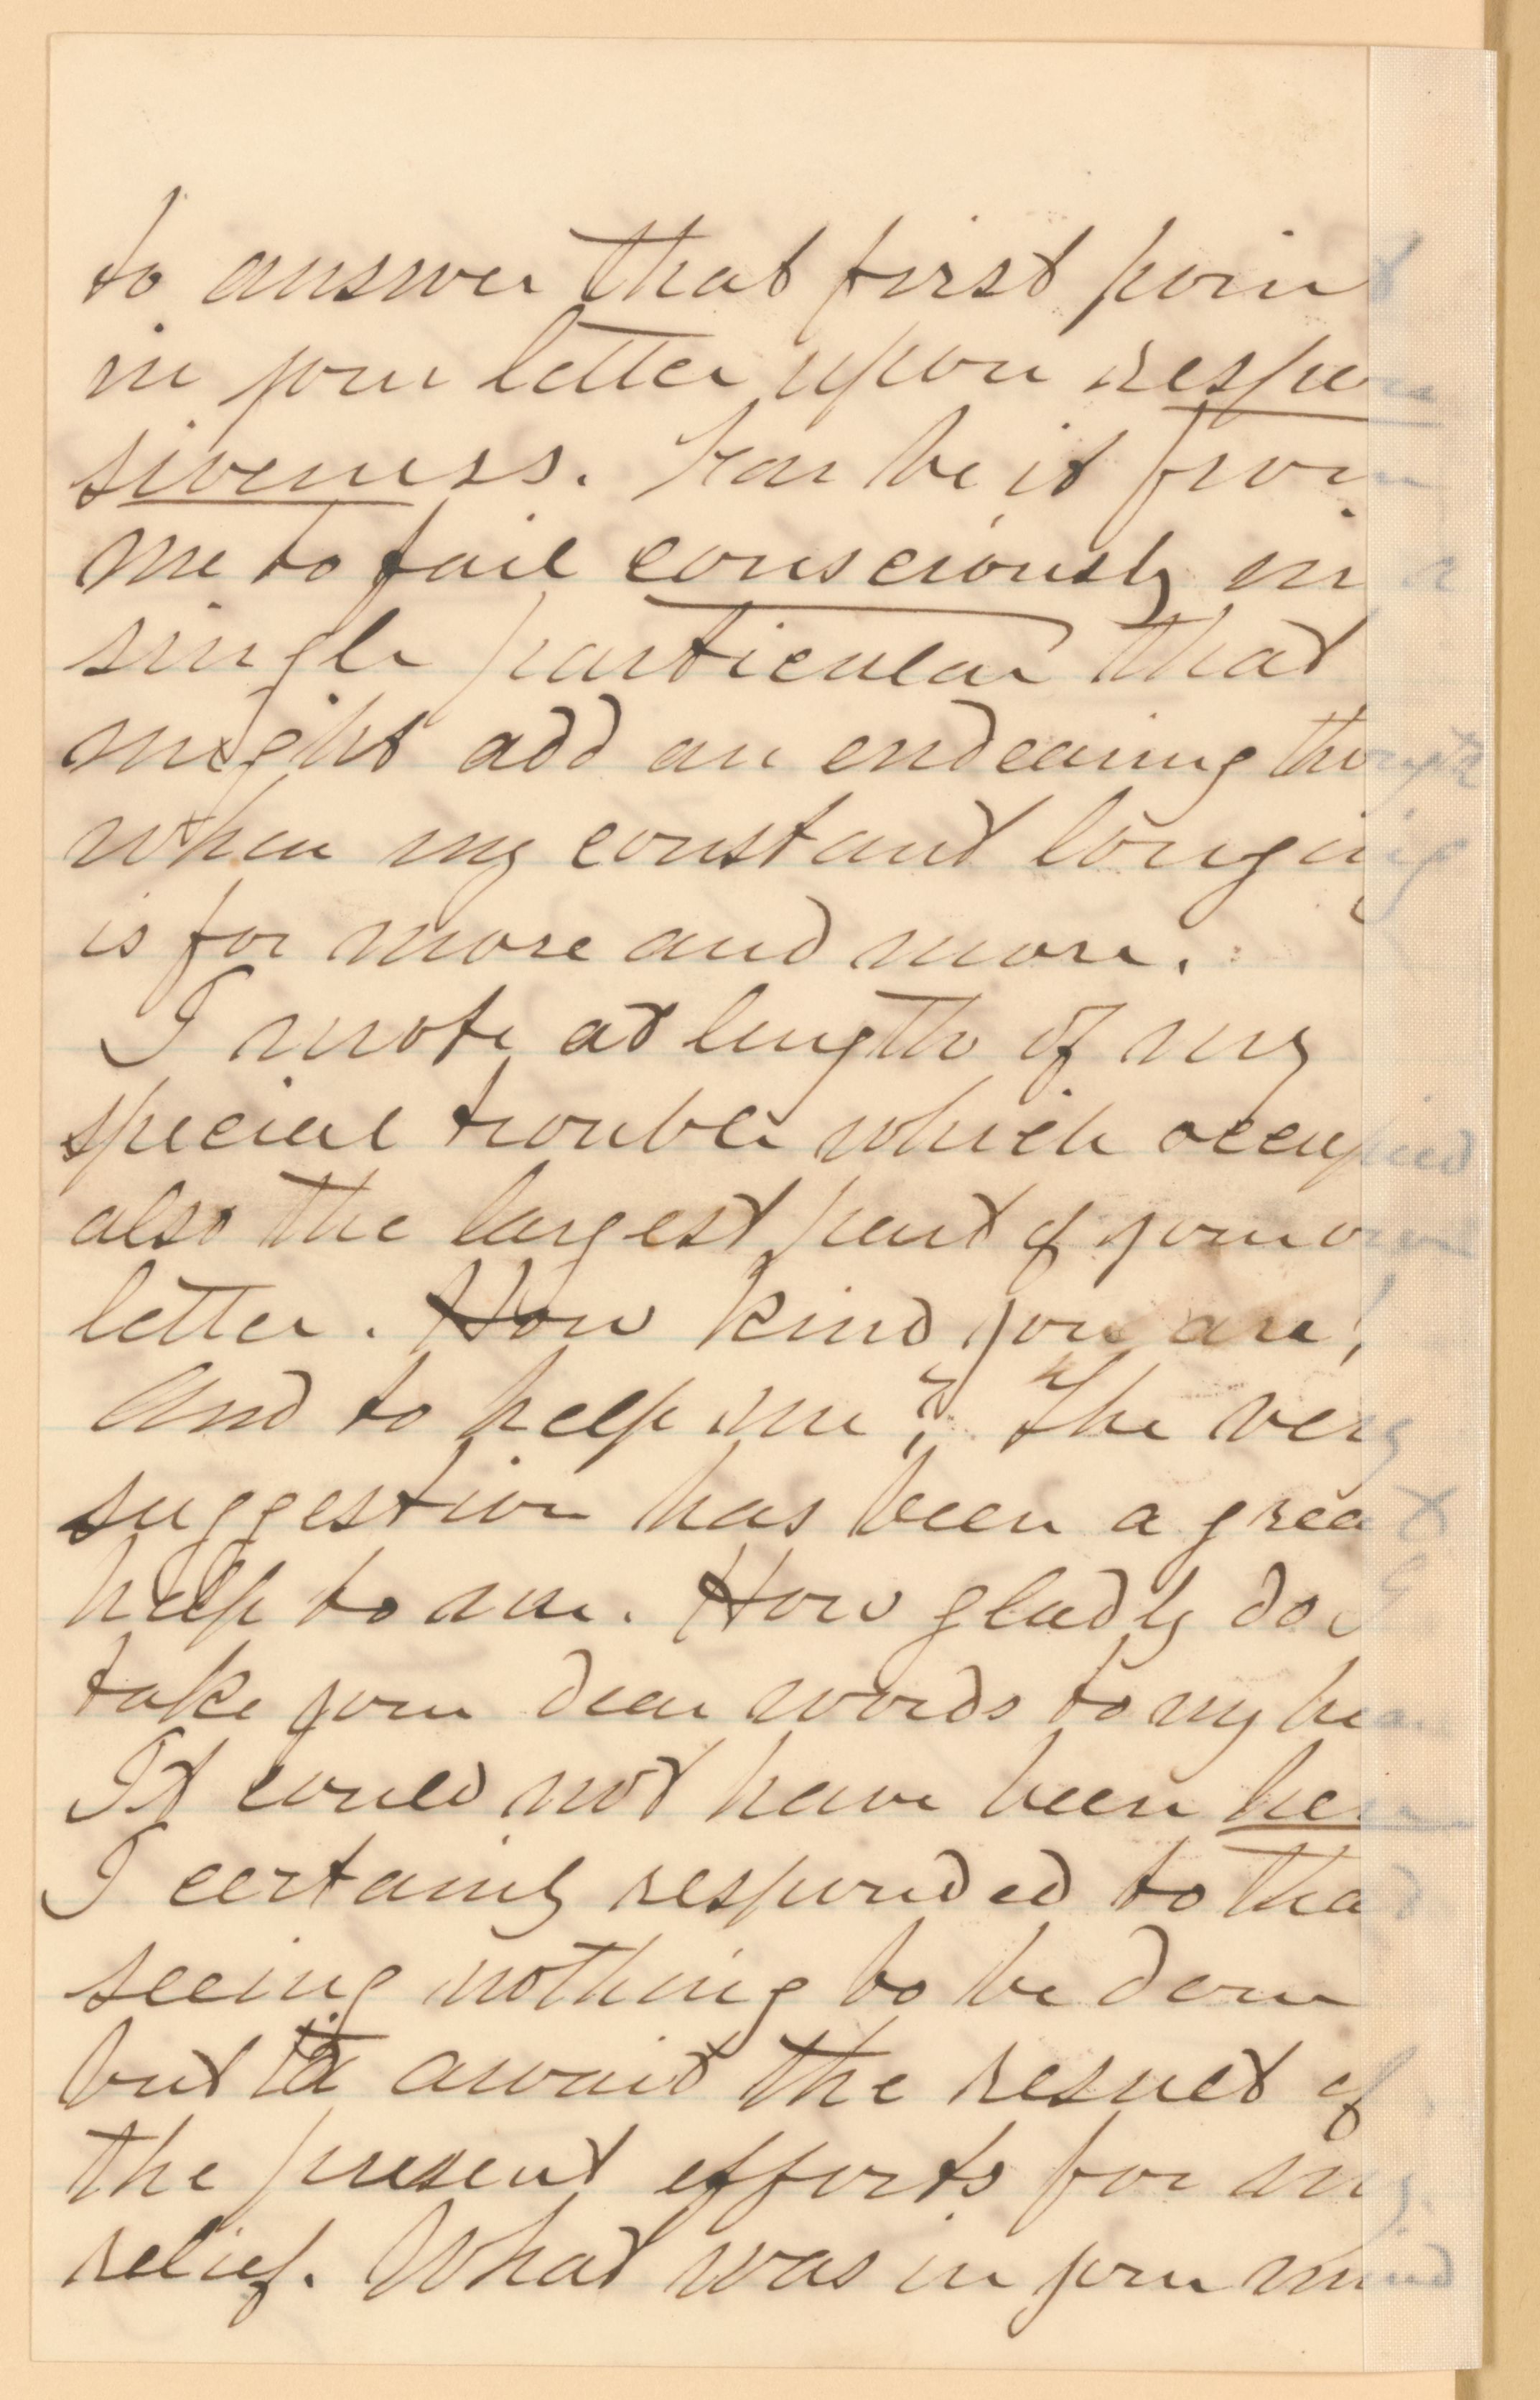 to answer that first point
in your letter upon respon
siveness. Far be it from
me to fail consciously in a
single particular that
might add an endearing thought
when my constant longing
is for more and more.
I wrote at length of my
special trouble which occupied
also the largest part of your own
letter. How kind you are!
And to help me? The very
suggestion has been a great
help to me. How gladly do I
take your dear words to my hear
It could not have been her
I certainly responded to that
seeing nothing to be done
but to await the result of
the present efforts for my
relief. What was in your mind